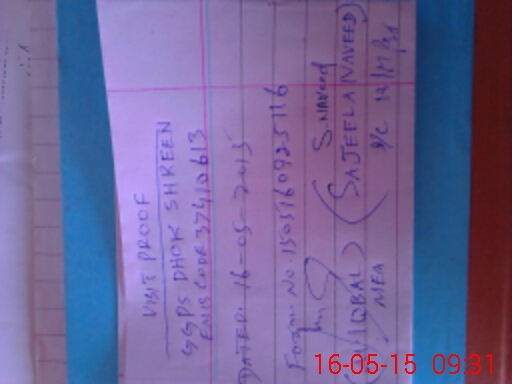 VISIT PROOF
GGPS DHOK SHREEN
EMIS CODE 37410613
DATED: 16-05-2015
Form No 1505160925116
S. Naveed
IQBAL) (SAJEELA NAVEED)
MEA
16-05-15 09:31